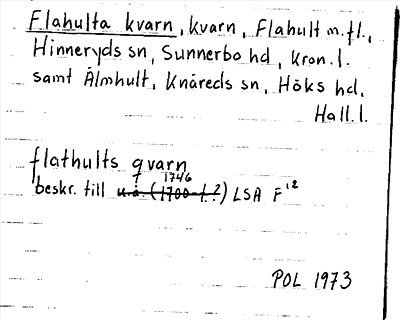 Flahulta kvarn, kvarn, Flahult m.fl.,
Hinneryds sn, Sunnerbo hd, Kron.l.
samt Älmhult, Knäreds sn, Höks hd,
Hall.l.
flathults qvarn
1746
beskr. till u.å. (1700-t.?) LSA F¹²
POL 1973